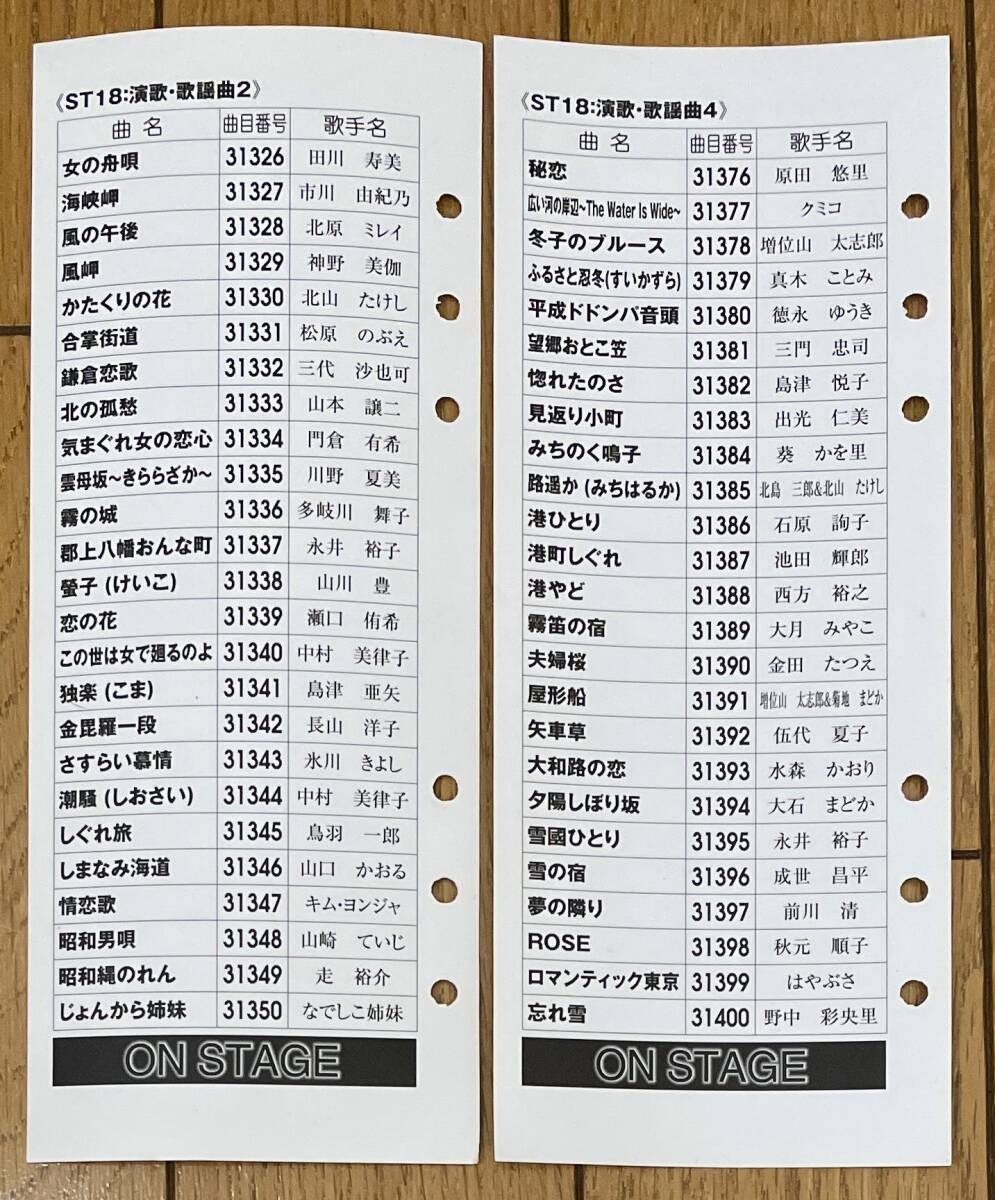 《ST18:演歌・歌謡曲2》
曲名 曲目番号 歌手名
女の舟唄 31326 田川 寿美
海峡岬 31327 市川 由紀乃
風の午後 31328 北原 ミレイ
風岬 31329 神野 美伽
かたくりの花 31330 北山 たけし
合掌街道 31331 松原 のぶえ
鎌倉恋歌 31332 三代 沙也可
北の孤愁 31333 山本 譲二
気まぐれ女の恋心 31334 門倉 有希
雲母坂~きららざか~ 31335 川野 夏美
霧の城 31336 多岐川 舞子
郡上八幡おんな町 31337 永井 裕子
螢子 (けいこ) 31338 山川 豊
恋の花 31339 瀬口 侑希
この世は女で廻るのよ 31340 中村 美律子
独楽 (こま) 31341 島津 亜矢
金毘羅一段 31342 長山 洋子
さすらい慕情 31343 氷川 きよし
潮騒 (しおさい) 31344 中村 美律子
しぐれ旅 31345 鳥羽 一郎
しまなみ海道 31346 山口 かおる
情恋歌 31347 キム・ヨンジャ
昭和男唄 31348 山崎 ていじ
昭和縄のれん 31349 走 裕介
じょんから姉妹 31350 なでしこ姉妹
ON STAGE
《ST18:演歌・歌謡曲4》
曲名 曲目番号 歌手名
秘恋 31376 原田 悠里
広い河の岸辺~The Water Is Wide~ 31377 クミコ
冬子のブルース 31378 増位山 太志郎
ふるさと忍冬(すいかずら) 31379 真木 ことみ
平成ドドンパ音頭 31380 徳永 ゆうき
望郷おとこ笠 31381 三門 忠司
惚れたのさ 31382 島津 悦子
見返り小町 31383 出光 仁美
みちのく鳴子 31384 葵 かを里
路遥か (みちはるか) 31385 北島 三郎&北山 たけし
港ひとり 31386 石原 詢子
港町しぐれ 31387 池田 輝郎
港やど 31388 西方 裕之
霧笛の宿 31389 大月 みやこ
夫婦桜 31390 金田 たつえ
屋形船 31391 増位山 太志郎&菊地 まどか
矢車草 31392 伍代 夏子
大和路の恋 31393 水森 かおり
夕陽しぼり坂 31394 大石 まどか
雪國ひとり 31395 永井 裕子
雪の宿 31396 成世 昌平
夢の隣り 31397 前川 清
ROSE 31398 秋元 順子
ロマンティック東京 31399 はやぶさ
忘れ雪 31400 野中 彩央里
ON STAGE